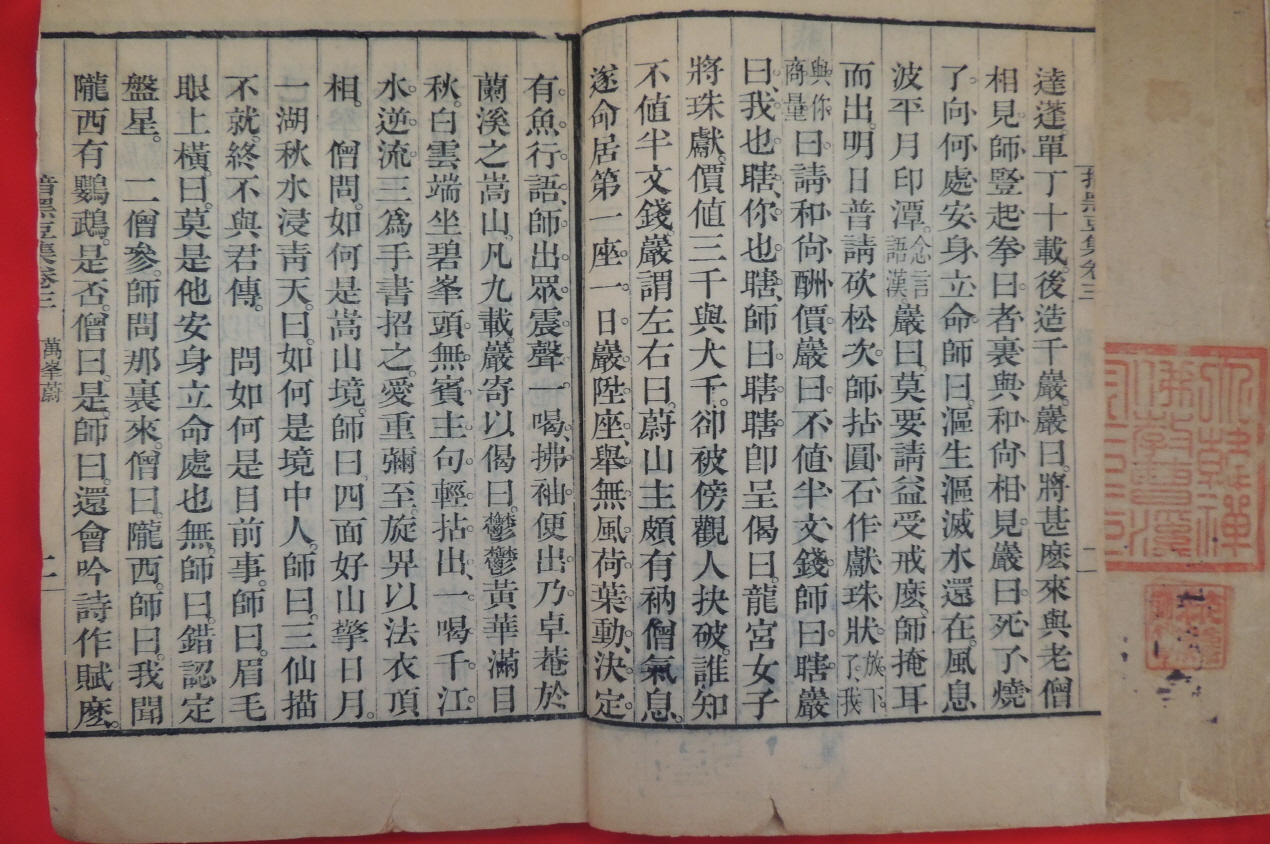 達蓬單丁十載。後造千巖。巖曰。將甚麼來與老僧
相見。師豎起拳曰。者裏與和尙相見。巖曰。死了燒
了。向何處安身立命。師曰。漚生漚滅水還在。風息
波平月印潭。念言語漢巖曰。莫要請益受戒麼。師掩耳
而出。明日普請砍松次。師拈圓石作獻珠狀。放下了。我
與你商量曰。請和尙酬價。巖曰。不値半文錢。師曰。瞎。巖
曰。我也瞎。你也瞎。師曰。瞎瞎。卽呈偈曰。龍宮女子
將珠獻。價値三千與大千。卻被傍觀人抉破。誰知
不値半文錢。巖謂左右曰。蔚山主頗有衲僧氣息。
遂命居第一座。一日巖陞座。舉無風荷葉動。決定
有魚行語。師出眾震聲一喝。拂袖便出。乃卓菴於
蘭溪之嵩山。凡九載。巖寄以偈曰。鬱鬱黃華滿目
秋。白雲端坐碧峯頭。無賓主句輕拈出。一喝千江
水逆流。三爲手書招之。愛重彌至。旋畀以法衣頂
相。僧問。如何是嵩山境。師曰。四面好山擎日月。
一湖秋水浸靑天。曰。如何是境中人。師曰。三仙描
不就。終不與君傳。問如何是目前事。師曰。眉毛
眼上橫。曰。莫是他安身立命處也無。師曰。錯認定
盤星。二僧參。師問那裏來。僧曰。隴西。師曰。我聞
隴西有鸚鵡。是否。僧曰。是。師曰。還會吟詩作賦麼。
黑豆集卷三 萬峯蔚 二